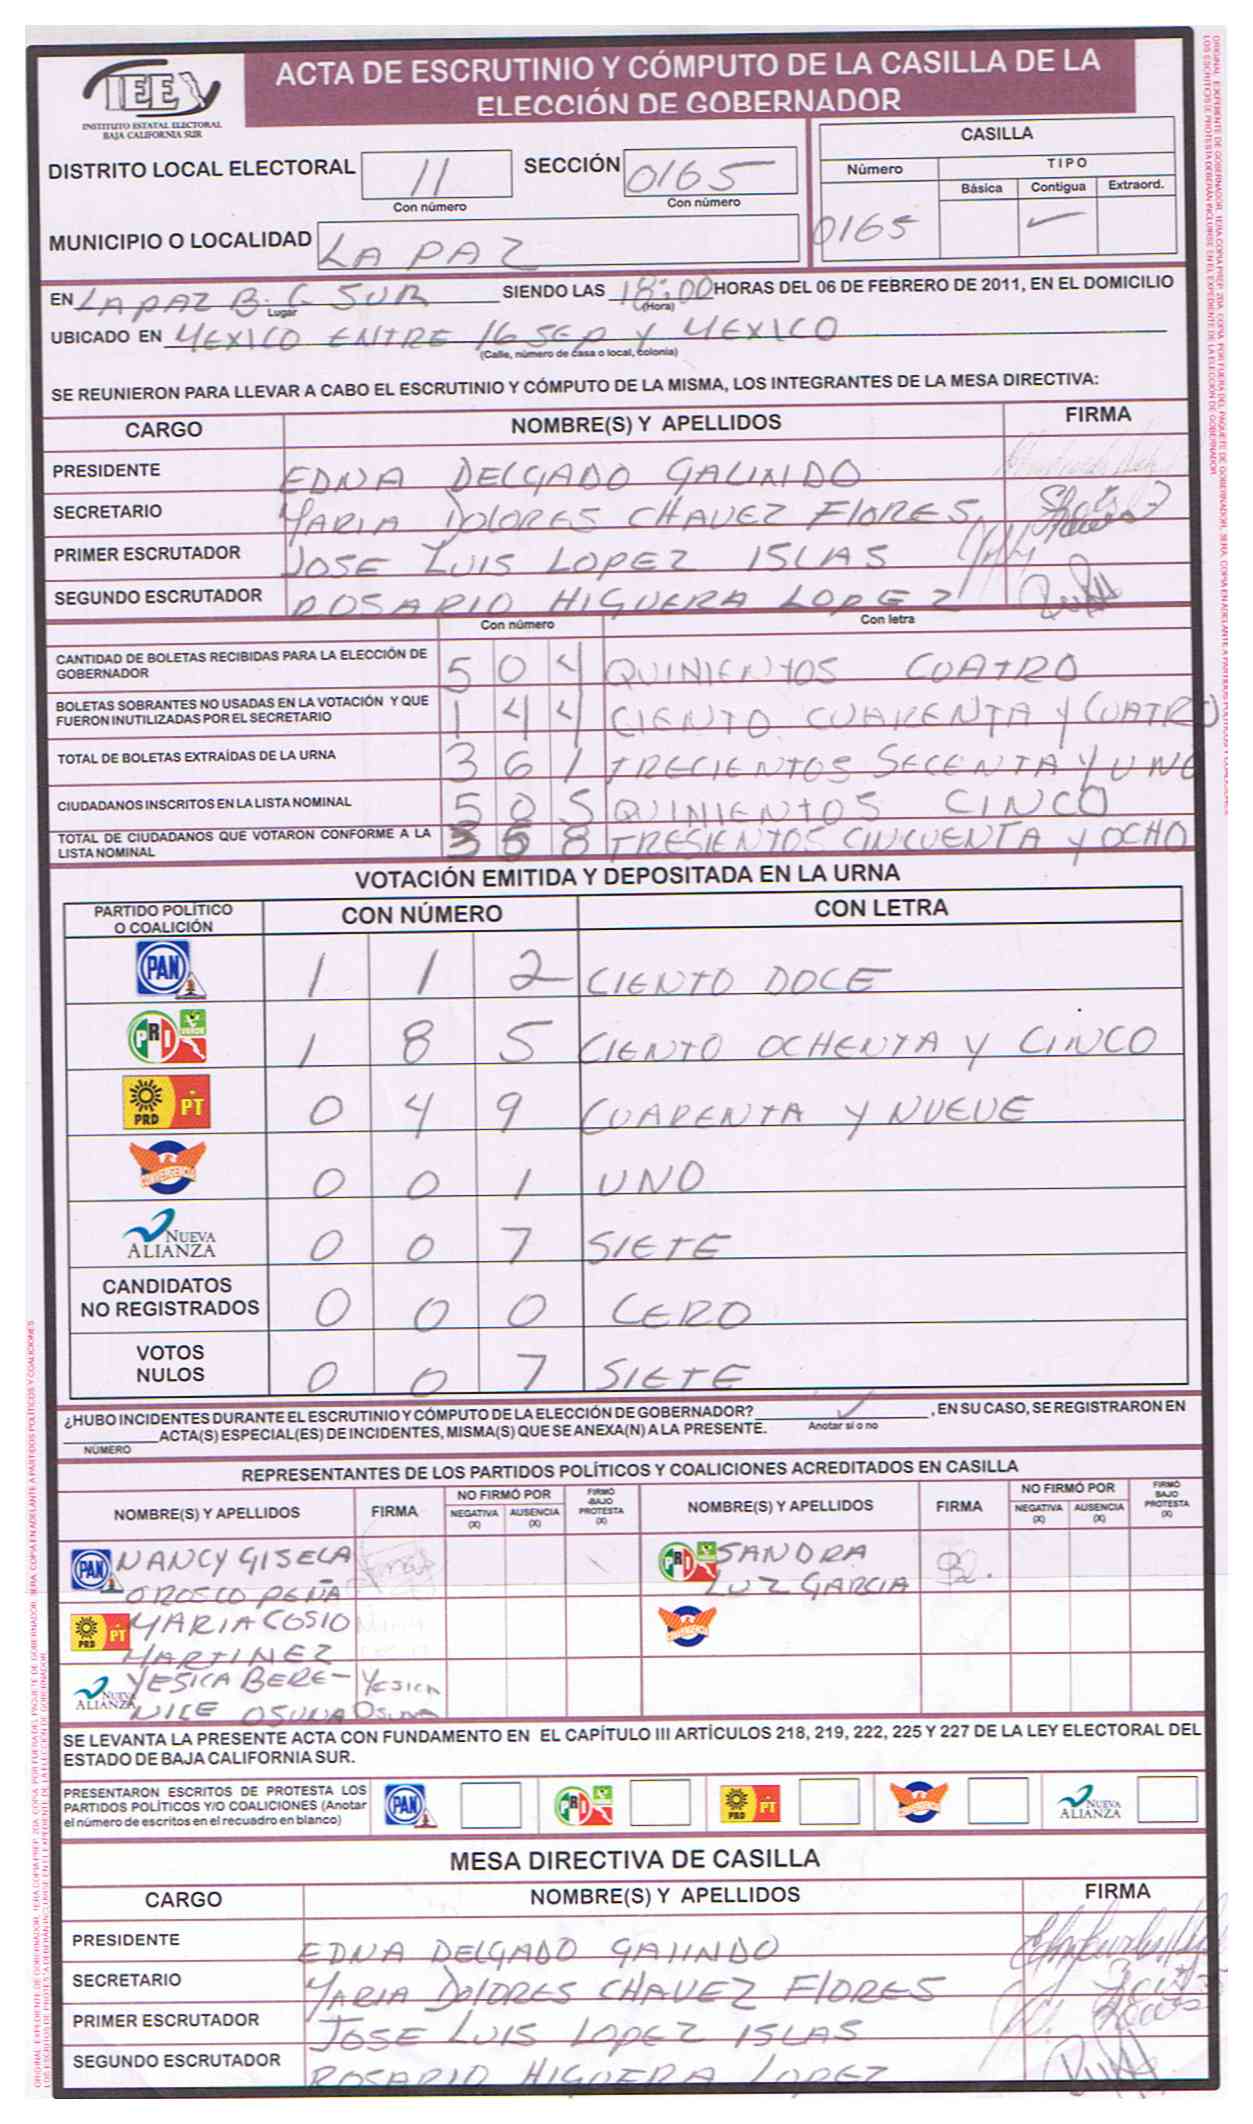 ACTA DE ESCRUTINIO Y CÓMPUTO DE LA CASILLA DE LA
ELECCIÓN DE GOBERNADOR
IEE
INSTITUTO ESTATAL ELECTORAL
BAJA CALIFORNIA SUR
DISTRITO LOCAL ELECTORAL 11 SECCIÓN 0165
Con número Con número
MUNICIPIO O LOCALIDAD LA PAZ
CASILLA
Número TIPO
Básica Contigua Extraord.
0165
EN LA PAZ B. C SUR SIENDO LAS 18:00 HORAS DEL 06 DE FEBRERO DE 2011, EN EL DOMICILIO
Lugar (Hora)
UBICADO EN MEXICO ENTRE 16 SEP Y MEXICO
(Calle, número de casa o local, colonia)
SE REUNIERON PARA LLEVAR A CABO EL ESCRUTINIO Y CÓMPUTO DE LA MISMA, LOS INTEGRANTES DE LA MESA DIRECTIVA:
CARGO NOMBRE(S) Y APELLIDOS FIRMA
PRESIDENTE EDNA DELGADO GALINDO
SECRETARIO MARIA DOLORES CHAVEZ FLORES
PRIMER ESCRUTADOR JOSE LUIS LOPEZ ISLAS
SEGUNDO ESCRUTADOR ROSARIO HIGUERA LOPEZ
Con número Con letra
CANTIDAD DE BOLETAS RECIBIDAS PARA LA ELECCIÓN DE
GOBERNADOR 5 0 4 QUINIENTOS CUATRO
BOLETAS SOBRANTES NO USADAS EN LA VOTACIÓN Y QUE
FUERON INUTILIZADAS POR EL SECRETARIO 1 4 4 CIENTO CUARENTA Y CUATRO
TOTAL DE BOLETAS EXTRAÍDAS DE LA URNA 3 6 1 TRECIENTOS SECENTA Y UNO
CIUDADANOS INSCRITOS EN LA LISTA NOMINAL 5 0 5 QUINIENTOS CINCO
TOTAL DE CIUDADANOS QUE VOTARON CONFORME A LA
LISTA NOMINAL 3 5 8 TRESIENTOS CINCUENTA Y OCHO
VOTACIÓN EMITIDA Y DEPOSITADA EN LA URNA
PARTIDO POLÍTICO
O COALICIÓN CON NÚMERO CON LETRA
PAN 1 1 2 CIENTO DOCE
PRI VERDE 1 8 5 CIENTO OCHENTA Y CINCO
PRD PT 0 4 9 CUARENTA Y NUEVE
CONVERGENCIA 0 0 1 UNO
NUEVA ALIANZA 0 0 7 SIETE
CANDIDATOS
NO REGISTRADOS 0 0 0 CERO
VOTOS
NULOS 0 0 7 SIETE
¿HUBO INCIDENTES DURANTE EL ESCRUTINIO Y CÓMPUTO DE LA ELECCIÓN DE GOBERNADOR? , EN SU CASO, SE REGISTRARON EN
Anotar sí o no
ACTA(S) ESPECIAL(ES) DE INCIDENTES, MISMA(S) QUE SE ANEXA(N) A LA PRESENTE.
NÚMERO
REPRESENTANTES DE LOS PARTIDOS POLÍTICOS Y COALICIONES ACREDITADOS EN CASILLA
NOMBRE(S) Y APELLIDOS FIRMA NO FIRMÓ POR NEGATIVA (X) AUSENCIA (X) FIRMÓ BAJO PROTESTA (X) NOMBRE(S) Y APELLIDOS FIRMA NO FIRMÓ POR NEGATIVA (X) AUSENCIA (X) FIRMÓ BAJO PROTESTA (X)
PAN NANCY GISELA PRI SANDRA
OROSCO PEÑA LUZ GARCIA
PRD PT MARIA COSIO CONVERGENCIA
MARTINEZ
NUEVA ALIANZA YESICA BERE- YESICA
NICE OSUNA OSUNA
SE LEVANTA LA PRESENTE ACTA CON FUNDAMENTO EN EL CAPÍTULO III ARTÍCULOS 218, 219, 222, 225 Y 227 DE LA LEY ELECTORAL DEL
ESTADO DE BAJA CALIFORNIA SUR.
PRESENTARON ESCRITOS DE PROTESTA LOS
PARTIDOS POLÍTICOS Y/O COALICIONES (Anotar
el número de escritos en el recuadro en blanco)
PAN PRI PRD PT CONVERGENCIA NUEVA ALIANZA
MESA DIRECTIVA DE CASILLA
CARGO NOMBRE(S) Y APELLIDOS FIRMA
PRESIDENTE EDNA DELGADO GALINDO
SECRETARIO MARIA DOLORES CHAVEZ FLORES
PRIMER ESCRUTADOR JOSE LUIS LOPEZ ISLAS
SEGUNDO ESCRUTADOR ROSARIO HIGUERA LOPEZ